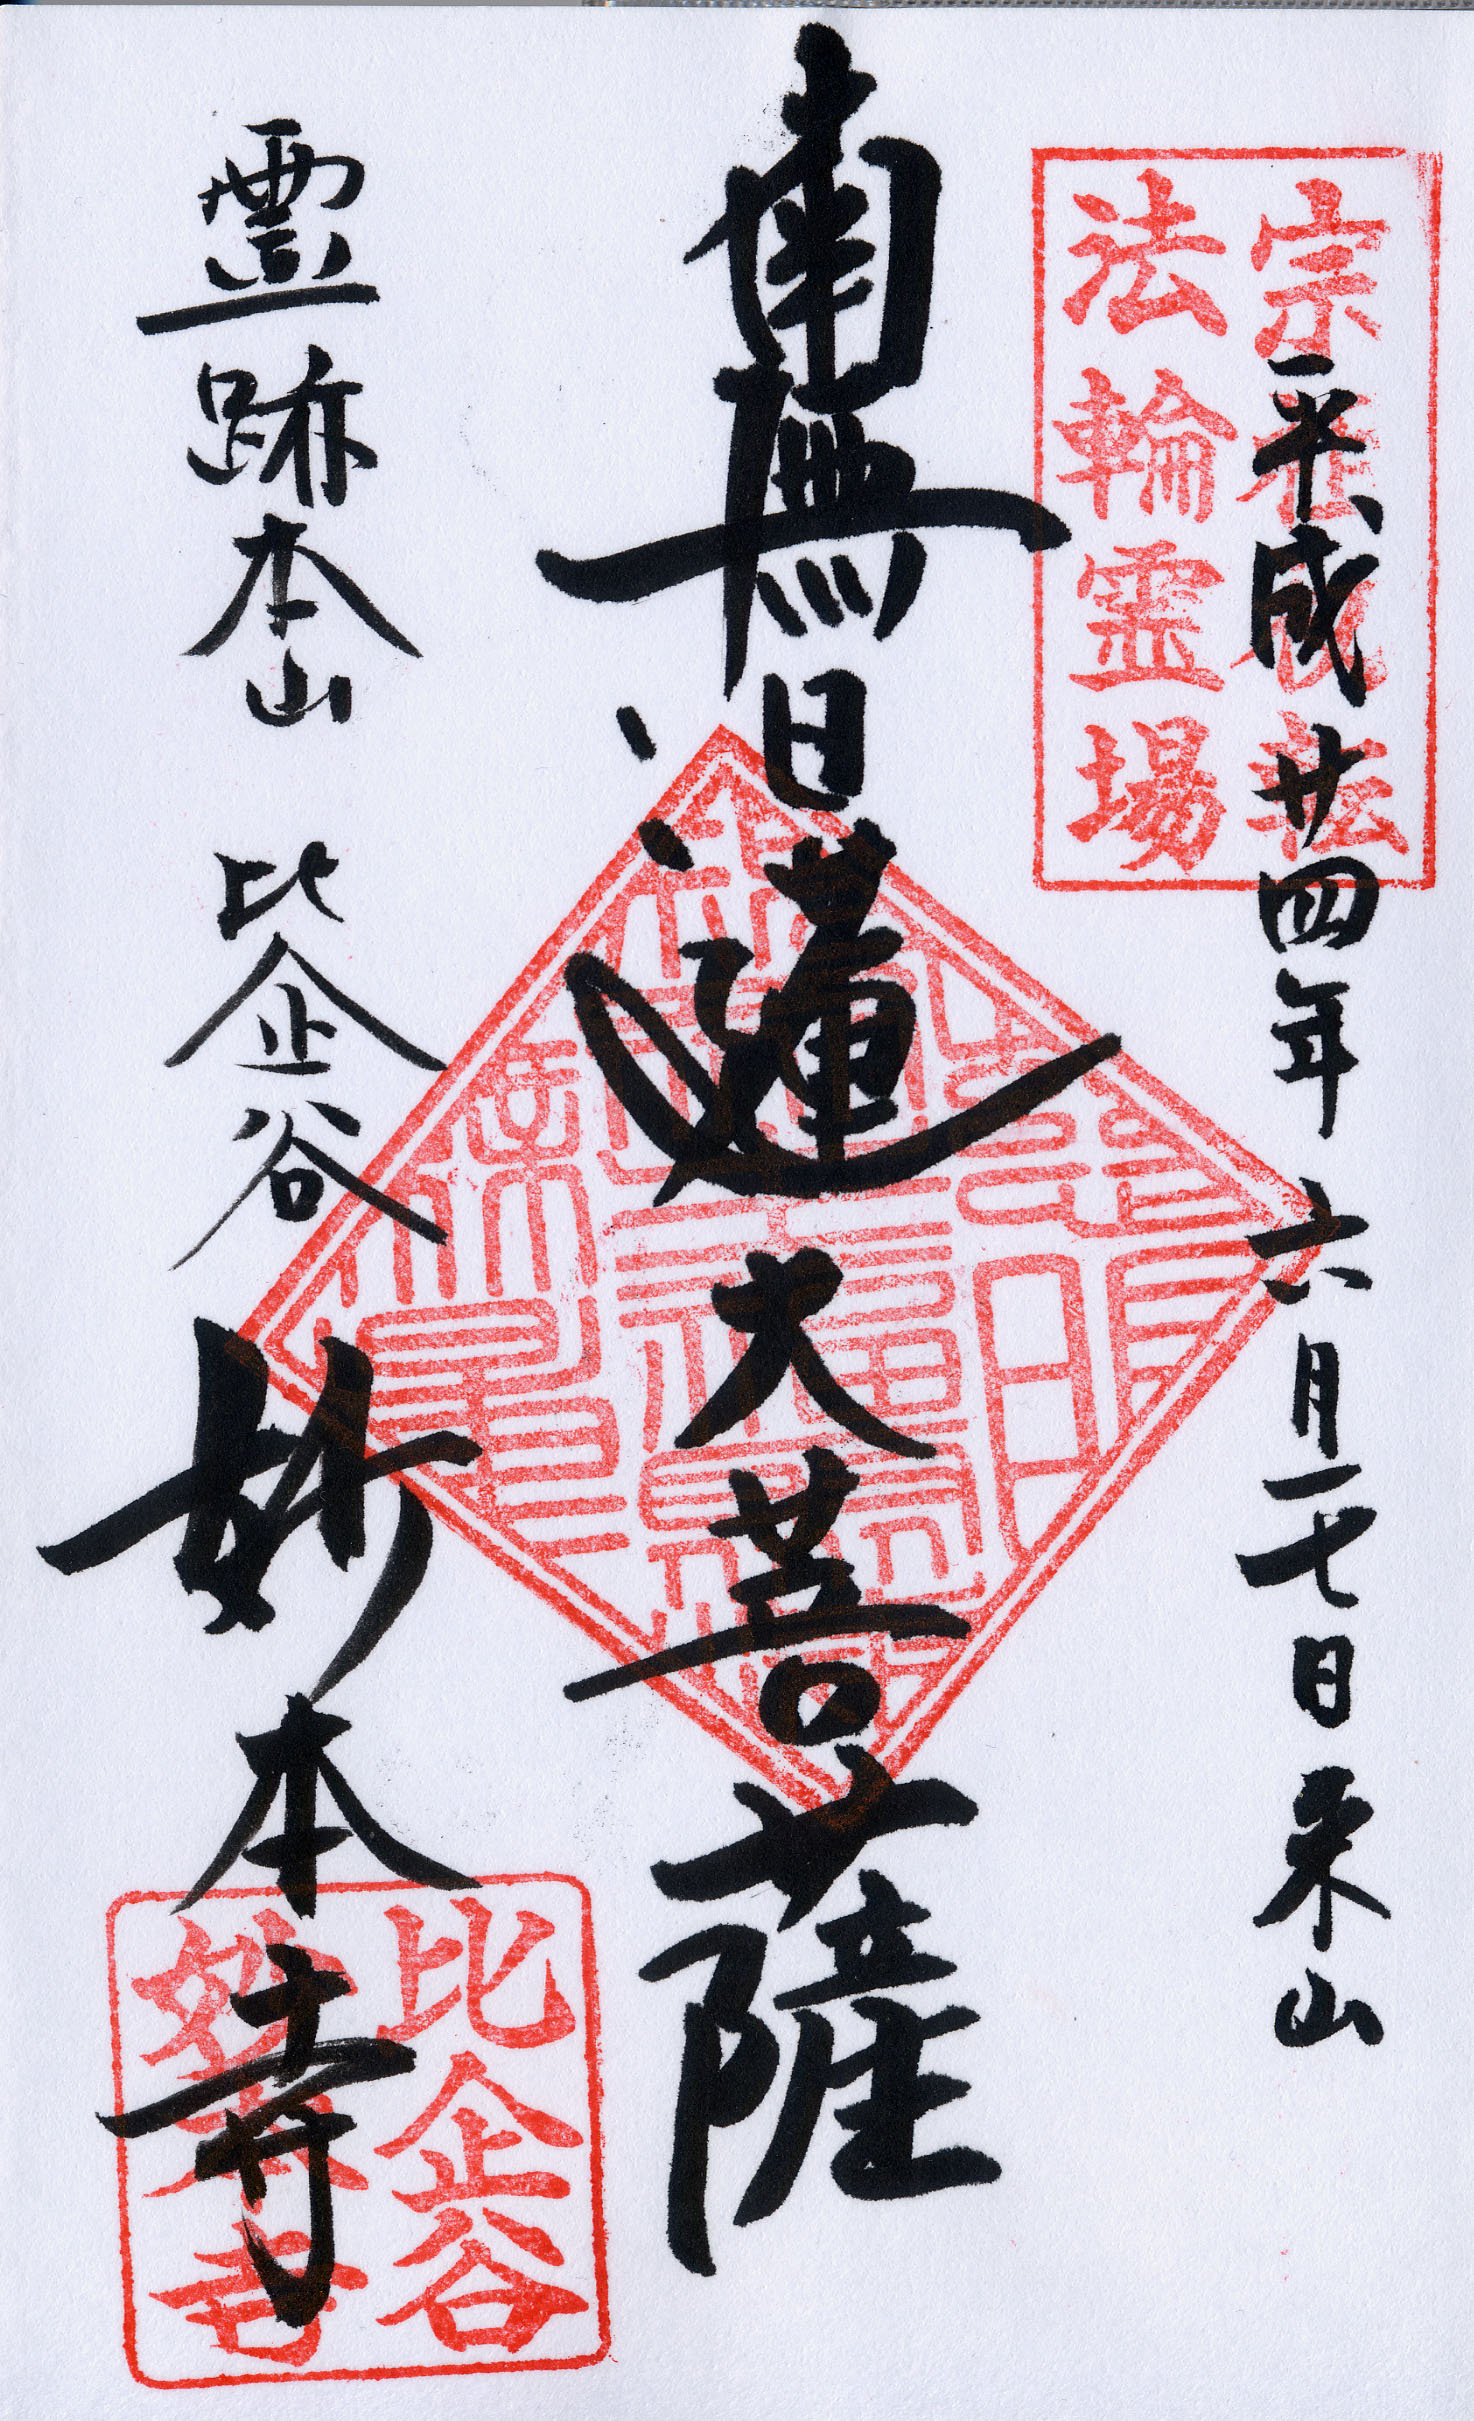 平成廿四年六月一七日来山
法輪霊場
南無日蓮大菩薩
霊跡本山 比企谷 妙本寺
比企谷
妙本寺